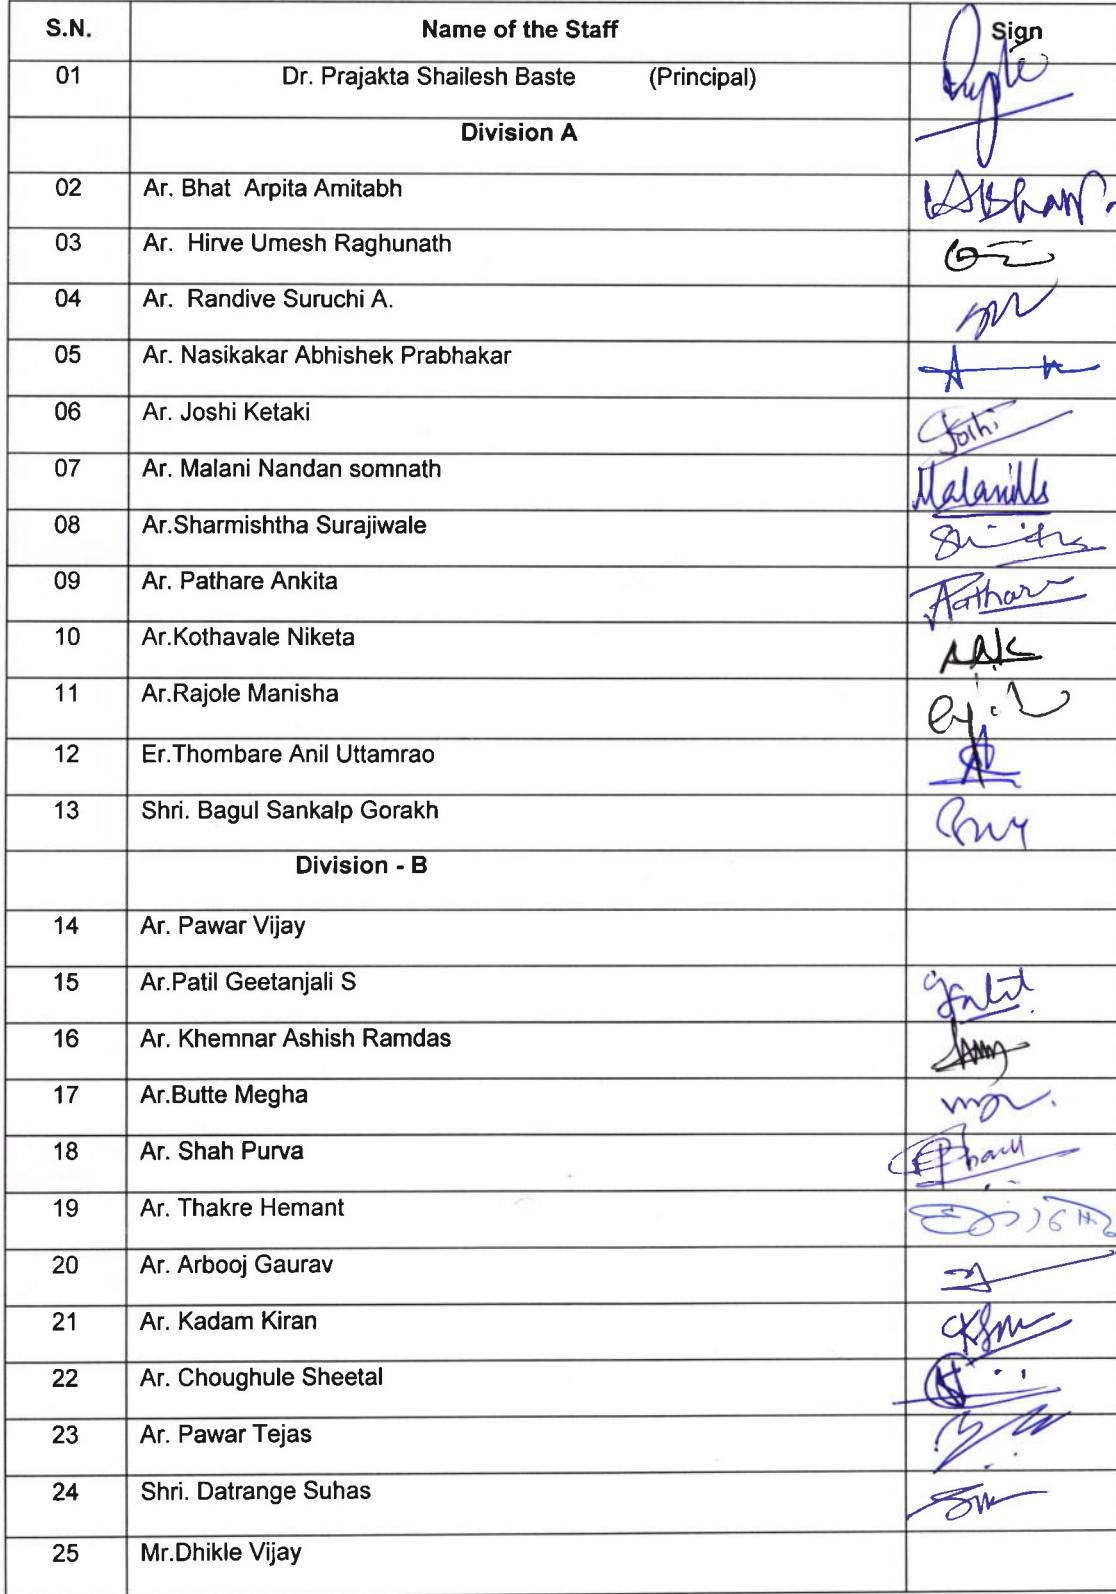 S.N. Name of the Staff Sign
01 Dr. Prajakta Shailesh Baste (Principal)
Division A
02 Ar. Bhat Arpita Amitabh
03 Ar. Hirve Umesh Raghunath
04 Ar. Randive Suruchi A.
05 Ar. Nasikakar Abhishek Prabhakar
06 Ar. Joshi Ketaki
07 Ar. Malani Nandan somnath
08 Ar.Sharmishtha Surajiwale
09 Ar. Pathare Ankita
10 Ar.Kothavale Niketa
11 Ar.Rajole Manisha
12 Er.Thombare Anil Uttamrao
13 Shri. Bagul Sankalp Gorakh
Division - B
14 Ar. Pawar Vijay
15 Ar.Patil Geetanjali S
16 Ar. Khemnar Ashish Ramdas
17 Ar.Butte Megha
18 Ar. Shah Purva
19 Ar. Thakre Hemant
20 Ar. Arbooj Gaurav
21 Ar. Kadam Kiran
22 Ar. Choughule Sheetal
23 Ar. Pawar Tejas
24 Shri. Datrange Suhas
25 Mr.Dhikle Vijay